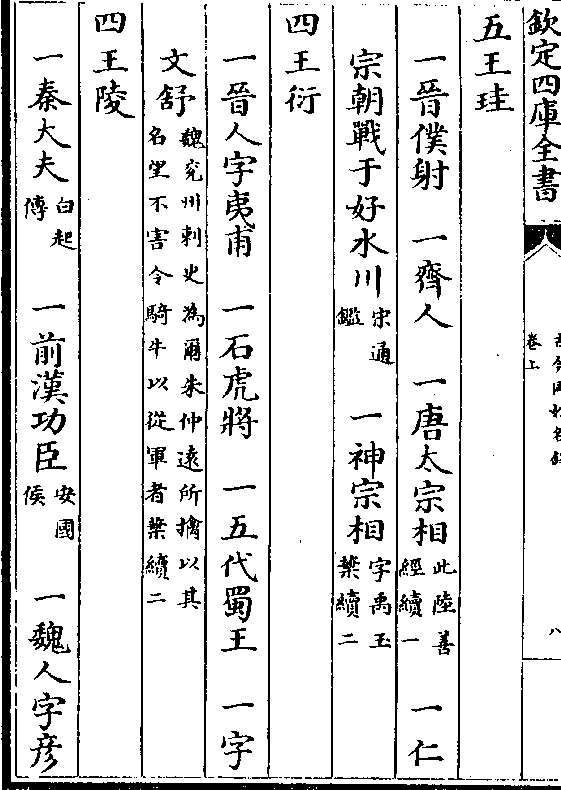 欽定四庫全書
卷上
八
五王珪
一晉僕射 一齊人 一唐太宗相 此陸善經續一 一仁
宗朝戰于好水川 宋通鑑 一神宗相 字禹玉葉續二
四王衍
一晉人字夷甫 一石虎將 一五代蜀王 一字
文舒 魏兗州刺史為爾朱仲遠所擒以其名望不害令騎牛以從軍者葉續二
四王陵
一秦大夫 白起傳 一前漢功臣 安國侯 一魏人字彥